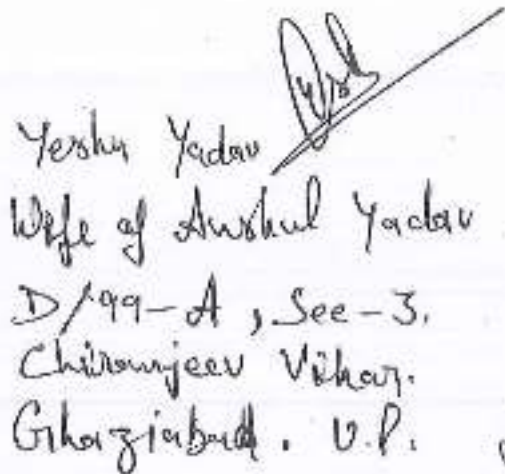 Yeshu Yadav
Wife of Anshul Yadav
D/99-A, Sec-3.
Chiranjeev Vihar.
Ghaziabad. U.P.